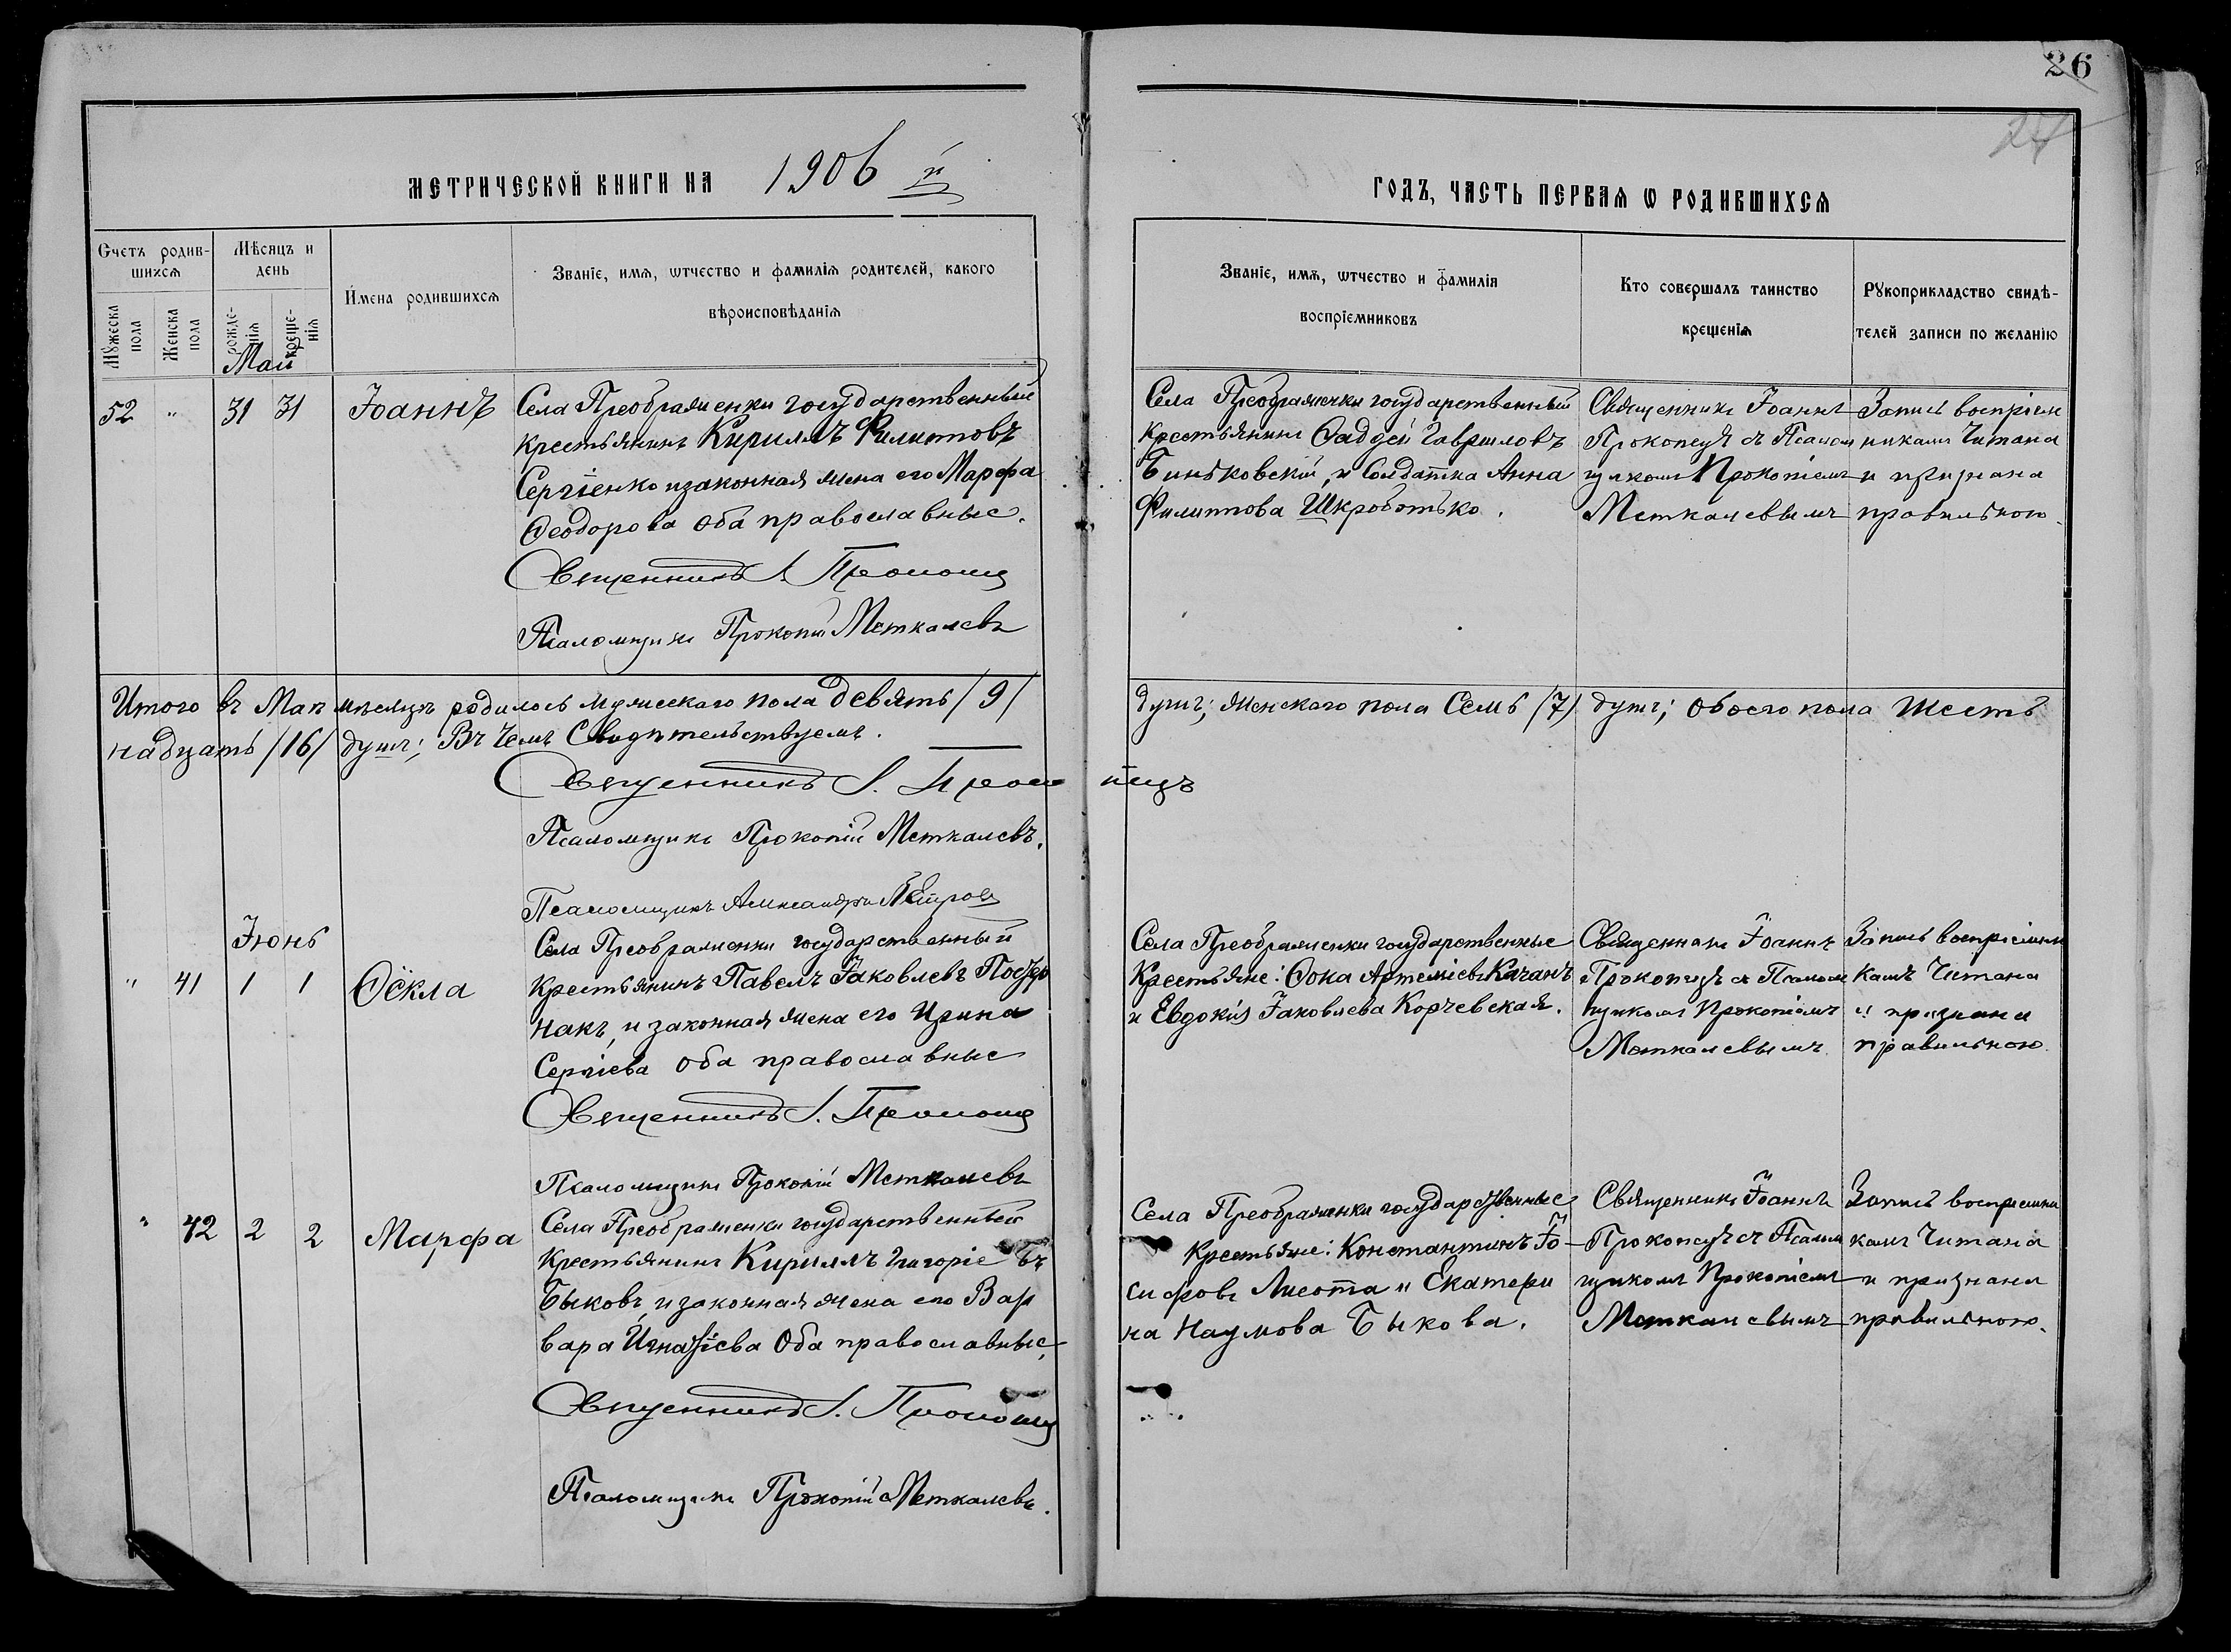 26
24
МЕТРИЧЕСКОЙ КНИГИ НА 1906 й
ГОДЪ, ЧАСТЬ ПЕРВАЯ Ѡ РОДИВШИХСЯ
Счетъ родив-
шихся
Мѣсяцъ и
день
Имена родившихся
Званіе, имя, ѿтчество и фамилія родителей, какого
вѣроисповѣданія
Мужеска
пола
Женска
пола
рожде-
нія
креще-
нія
Званіе, имя, ѿтчество и фамилія
воспріемниковъ
Кто совершалъ таинство
крещенія
Рукоприкладство свидѣ-
телей записи по желанію
Май
52 " 31 31 Іоаннъ
Села Преображенки государственный
крестьянинъ Кириллъ Филипповъ
Сергіенко и законная жена его Марфа
Ѳеодорова оба православные.
Священникъ І Прокопецъ
Псаломщикъ Прокопій Меткалевъ
Села Преображенки государственный
крестьянинъ Ѳаддей Гавриловъ
Биньковскій, и Солдатка Анна
Филиппова Шкроботько.
Священникъ Іоаннъ
Прокопецъ съ Псалом
щикомъ Прокопіемъ
Меткалевымъ
Запись воспріем
никамъ Читана
и признана
правильною.
Итого въ Маѣ мѣсяцѣ родилось мужескаго пола девять /9/
душъ; женскаго пола Семь (7) душъ; обоего пола Шесть
надцать /16/ душъ; Въ чемъ Свидѣтельствуемъ.
Священникъ І. Прокопецъ
Псаломщикъ Прокопій Меткалевъ.
Псаломщикъ Александръ Петровъ
Іюнь
" 41 1 1 Ѳёкла
Села Преображенки государственный
крестьянинъ Павелъ Іаковлевъ Поздо
накъ, и законная жена его Ирина
Сергіева оба православные
Священникъ І. Прокопецъ
Псаломщикъ Прокопій Меткалевъ
Села Преображенки государственные
Крестьяне: Ѳока Артеміевъ Качанъ
и Евдокія Іаковлева Корчевская.
Священникъ Іоаннъ
Прокопецъ съ Псалом
щикомъ Прокопіемъ
Меткалевымъ
Запись воспріемни
камъ Читана
и признана
правильною
" 42 2 2 Марфа
Села Преображенки государственный
Крестьянинъ Кириллъ Григоріевъ
Быковъ, и законная жена его Вар
вара Игнатіева Оба православные,
Священникъ І. Прокопецъ
Псаломщикъ Прокопій Меткалевъ.
Села Преображенки государственные
Крестьяне: Константинъ Іо-
сифовъ Лисота и Екатери
на Наумова Быкова.
Священникъ Іоаннъ
Прокопецъ съ Псалом
щикомъ Прокопіемъ
Меткалевымъ
Запись воспріемни
камъ Читана
и признана
правильною.